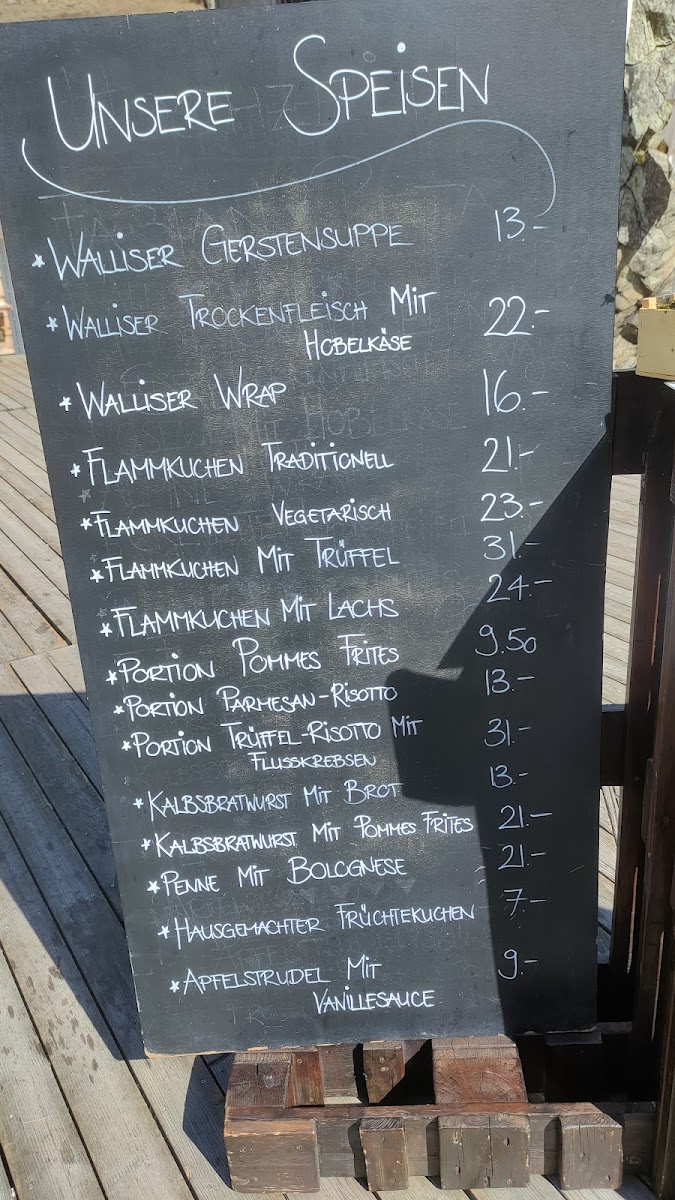 UNSERE SPEISEN
* WALLISER GERSTENSUPPE 13.-
* WALLISER TROCKENFLEISCH MIT 22.-
HOBELKÄSE
* WALLISER WRAP 16.-
* FLAMMKUCHEN TRADITIONELL 21.-
* FLAMMKUCHEN VEGETARISCH 23.-
* FLAMMKUCHEN MIT TRÜFFEL 31.-
* FLAMMKUCHEN MIT LACHS 24.-
* PORTION POMMES FRITES 9.50
* PORTION PARMESAN-RISOTTO 13.-
* PORTION TRÜFFEL-RISOTTO MIT 31.-
FLUSSKREBSEN
* KALBSBRATWURST MIT BROT 13.-
* KALBSBRATWURST MIT POMMES FRITES 21.-
* PENNE MIT BOLOGNESE 21.-
* HAUSGEMACHTER FRÜCHTEKUCHEN 7.-
* APFELSTRUDEL MIT 9.-
VANILLESAUCE